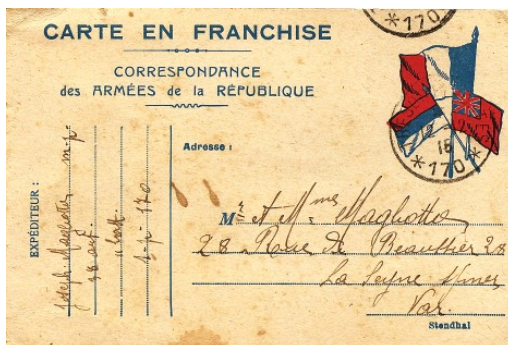 *170
CARTE EN FRANCHISE
CORRESPONDANCE
des ARMÉES de la RÉPUBLIQUE
12
16
*170*
Adresse :
EXPÉDITEUR :
Joseph Magliotto
38
S.P. 170
Mr et Mme Magliotto
28 Rue de Beaussier 28
La Seyne s/mer
Var.
Stendhal